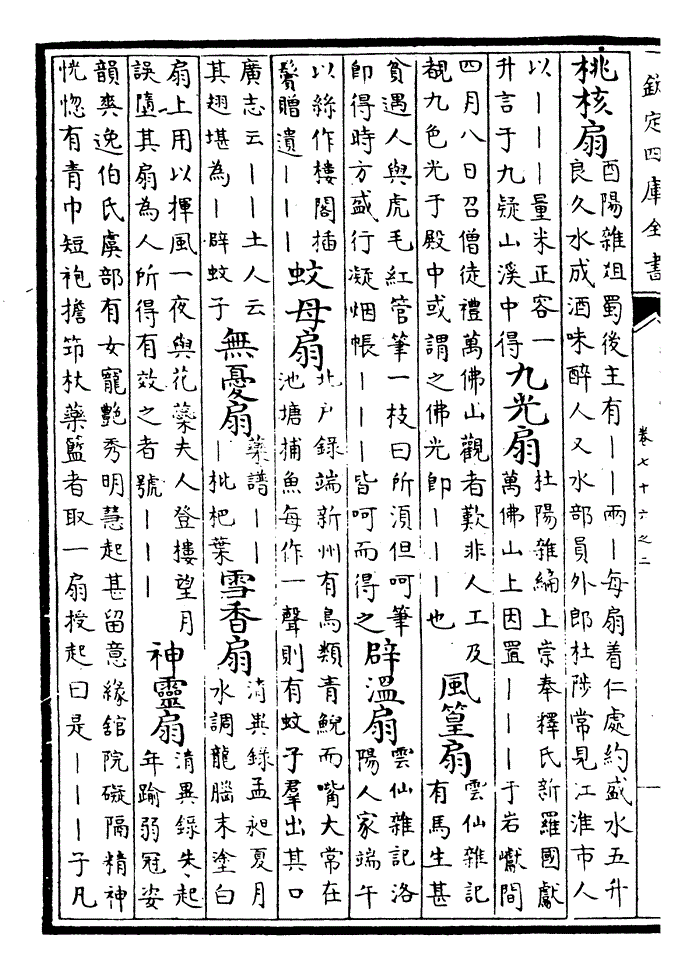 欽定四庫全書
卷七十六之二
桃核扇
酉陽雜俎蜀後主有丨丨兩丨每扇着仁處約盛水五升
良久水成酒味醉人又水部員外郎杜陟常見江淮市人
以丨丨丨量米正容一
升言于九疑山溪中得
九光扇
杜陽雜編上崇奉釋氏新羅國獻
萬佛山上因置丨丨丨于岩巘間
四月八日召僧徒禮萬佛山觀者歎非人工及
覩九色光于殿中或謂之佛光即丨丨丨也
風篁扇
雲仙雜記
有馬生甚
貧遇人與虎毛紅管筆一枝曰所須但呵筆
即得時方盛行凝烟帳丨丨丨皆呵而得之
辟溫扇
雲仙雜記洛
陽人家端午
以絲作樓閣插
鬢贈遺丨丨丨
蚊母扇
北戶錄端新州有鳥類青鶃而嘴大常在
池塘捕魚每作一聲則有蚊子羣出其口
廣志云丨丨土人云
其翅堪為丨辟蚊子
無憂扇
藥譜丨丨
丨枇杷葉
雪香扇
清異錄孟昶夏月
水調龍腦末塗白
扇上用以揮風一夜與花蘂夫人登樓望月
誤墮其扇為人所得有效之者號丨丨丨
神靈扇
清異錄朱起
年踰弱冠姿
韻爽逸伯氏虞部有女寵艷秀明慧起甚留意緣舘院礙隔精神
恍惚有青巾短袍擔笻杖藥籃者取一扇授起曰是丨丨丨子凡